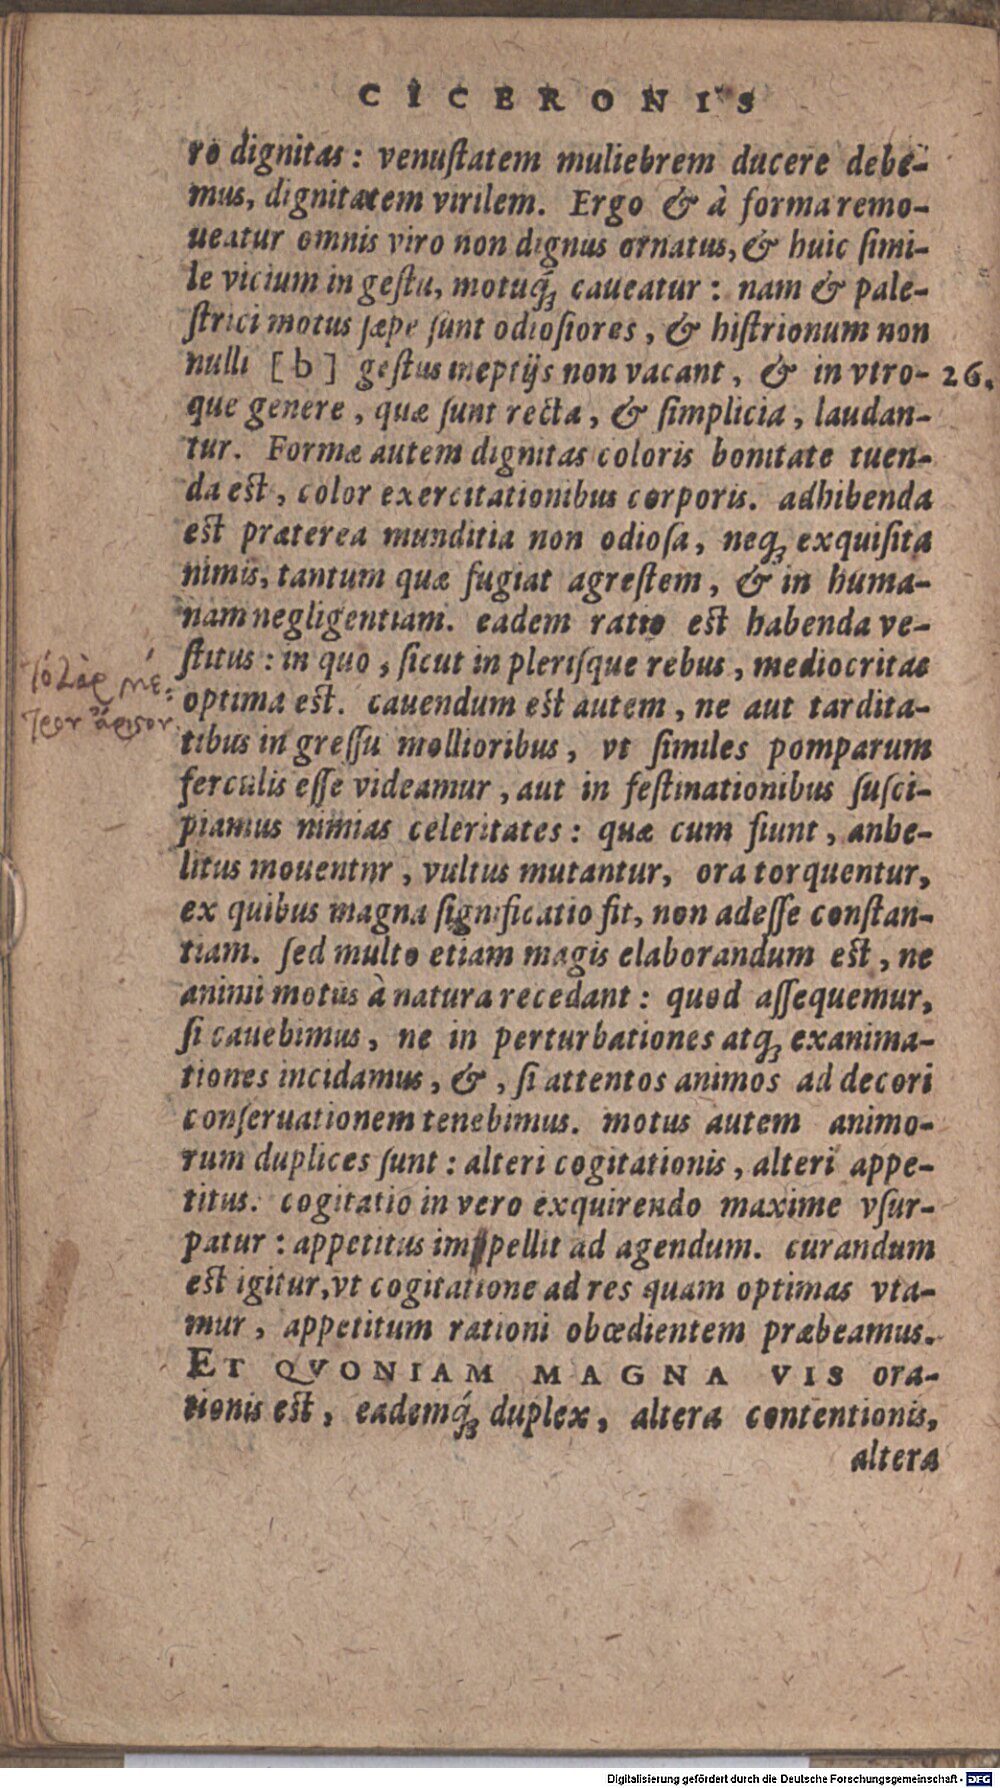 CICERONIS
ro dignitas: venuſtatem muliebrem ducere debe-
mus, dignitatem virilem. Ergo & à forma remo-
ueatur omnis viro non dignus ornatus, & huic ſimi-
le vicium in geſtu, motuq́ꝫ caueatur: nam & pale-
ſtrici motus ſæpe ſunt odioſiores, & hiſtrionum non
nulli [b] geſtus ineptijs non vacant, & in vtro- 26.
que genere, quæ ſunt recta, & ſimplicia, laudan-
tur. Formæ autem dignitas coloris bonitate tuen-
da eſt, color exercitationibus corporis. adhibenda
eſt præterea munditia non odioſa, neqꝫ exquiſita
nimis, tantum quæ fugiat agreſtem, & in huma-
nam negligentiam. eadem ratio eſt habenda ve-
ſtitus: in quo, ſicut in pleriſque rebus, mediocritas
optima eſt. cauendum eſt autem, ne aut tardita-
tibus in greſſu mollioribus, vt ſimiles pomparum
ferculis eſſe videamur, aut in feſtinationibus ſuſci-
piamus nimias celeritates: quæ cum fiunt, anhe-
litus mouentnr, vultus mutantur, ora torquentur,
ex quibus magna ſignificatio fit, non adeſſe conſtan-
tiam. ſed multo etiam magis elaborandum eſt, ne
animi motus à natura recedant: quod aſſequemur,
ſi cauebimus, ne in perturbationes atqꝫ exanima-
tiones incidamus, &, ſi attentos animos ad decori
conſeruationem tenebimus. motus autem animo-
rum duplices ſunt: alteri cogitationis, alteri appe-
titus. cogitatio in vero exquirendo maxime vſur-
patur: appetitus impellit ad agendum. curandum
eſt igitur, vt cogitatione ad res quam optimas vta-
mur, appetitum rationi obœdientem præbeamus.
ET QVONIAM MAGNA VIS ora-
tionis eſt, eademq́ꝫ duplex, altera contentionis,
altera
Digitalisierung gefördert durch die Deutsche Forschungsgemeinschaft - DFG